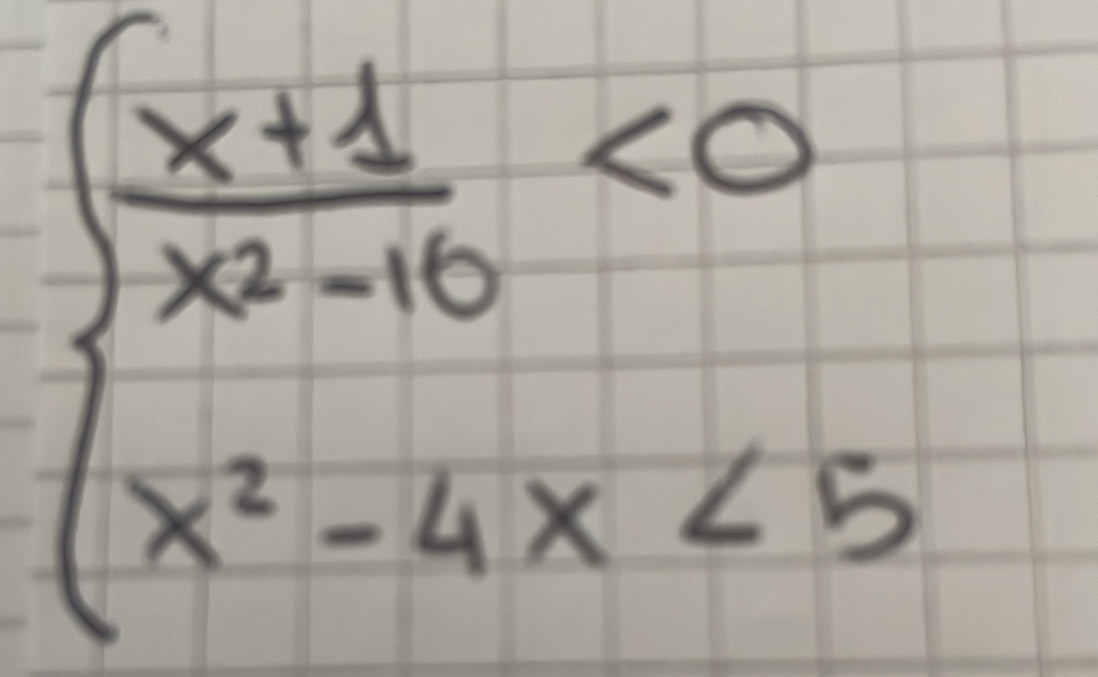 x+1 <0
x2-16
x²-4x<5